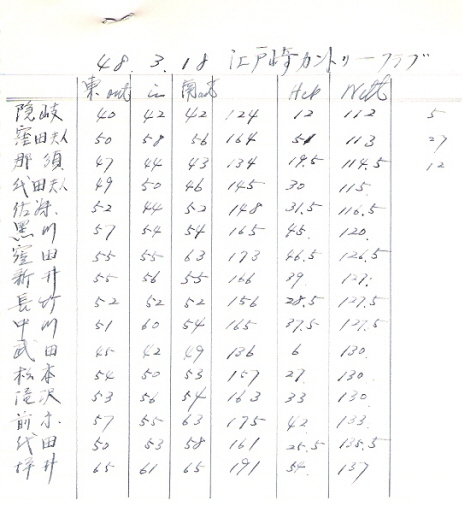 48. 3. 18 江戸崎カントリークラブ
東out in 南out Hcp Nett
隠岐 40 42 42 124 12 112 5
窪田夫人 50 58 56 164 51 113 27
那須 47 44 43 134 19.5 114.5 12
代田夫人 49 50 46 145 30 115.
佐藤 52 44 52 148 31.5 116.5
黒川 57 54 54 165 45. 120.
窪田 55 55 63 173 46.5 126.5
新井 55 56 55 166 39 127.
長竹 52 52 52 156 28.5 127.5
中川 51 60 54 165 37.5 127.5
武田 45 42 49 136 6 130.
松本 54 50 53 157 27. 130.
滝沢 53 56 54 163 33 130.
前 57 55 63 175 42 133.
代田 50 53 58 161 25.5 135.5
坪井 65 61 65 191 54. 137